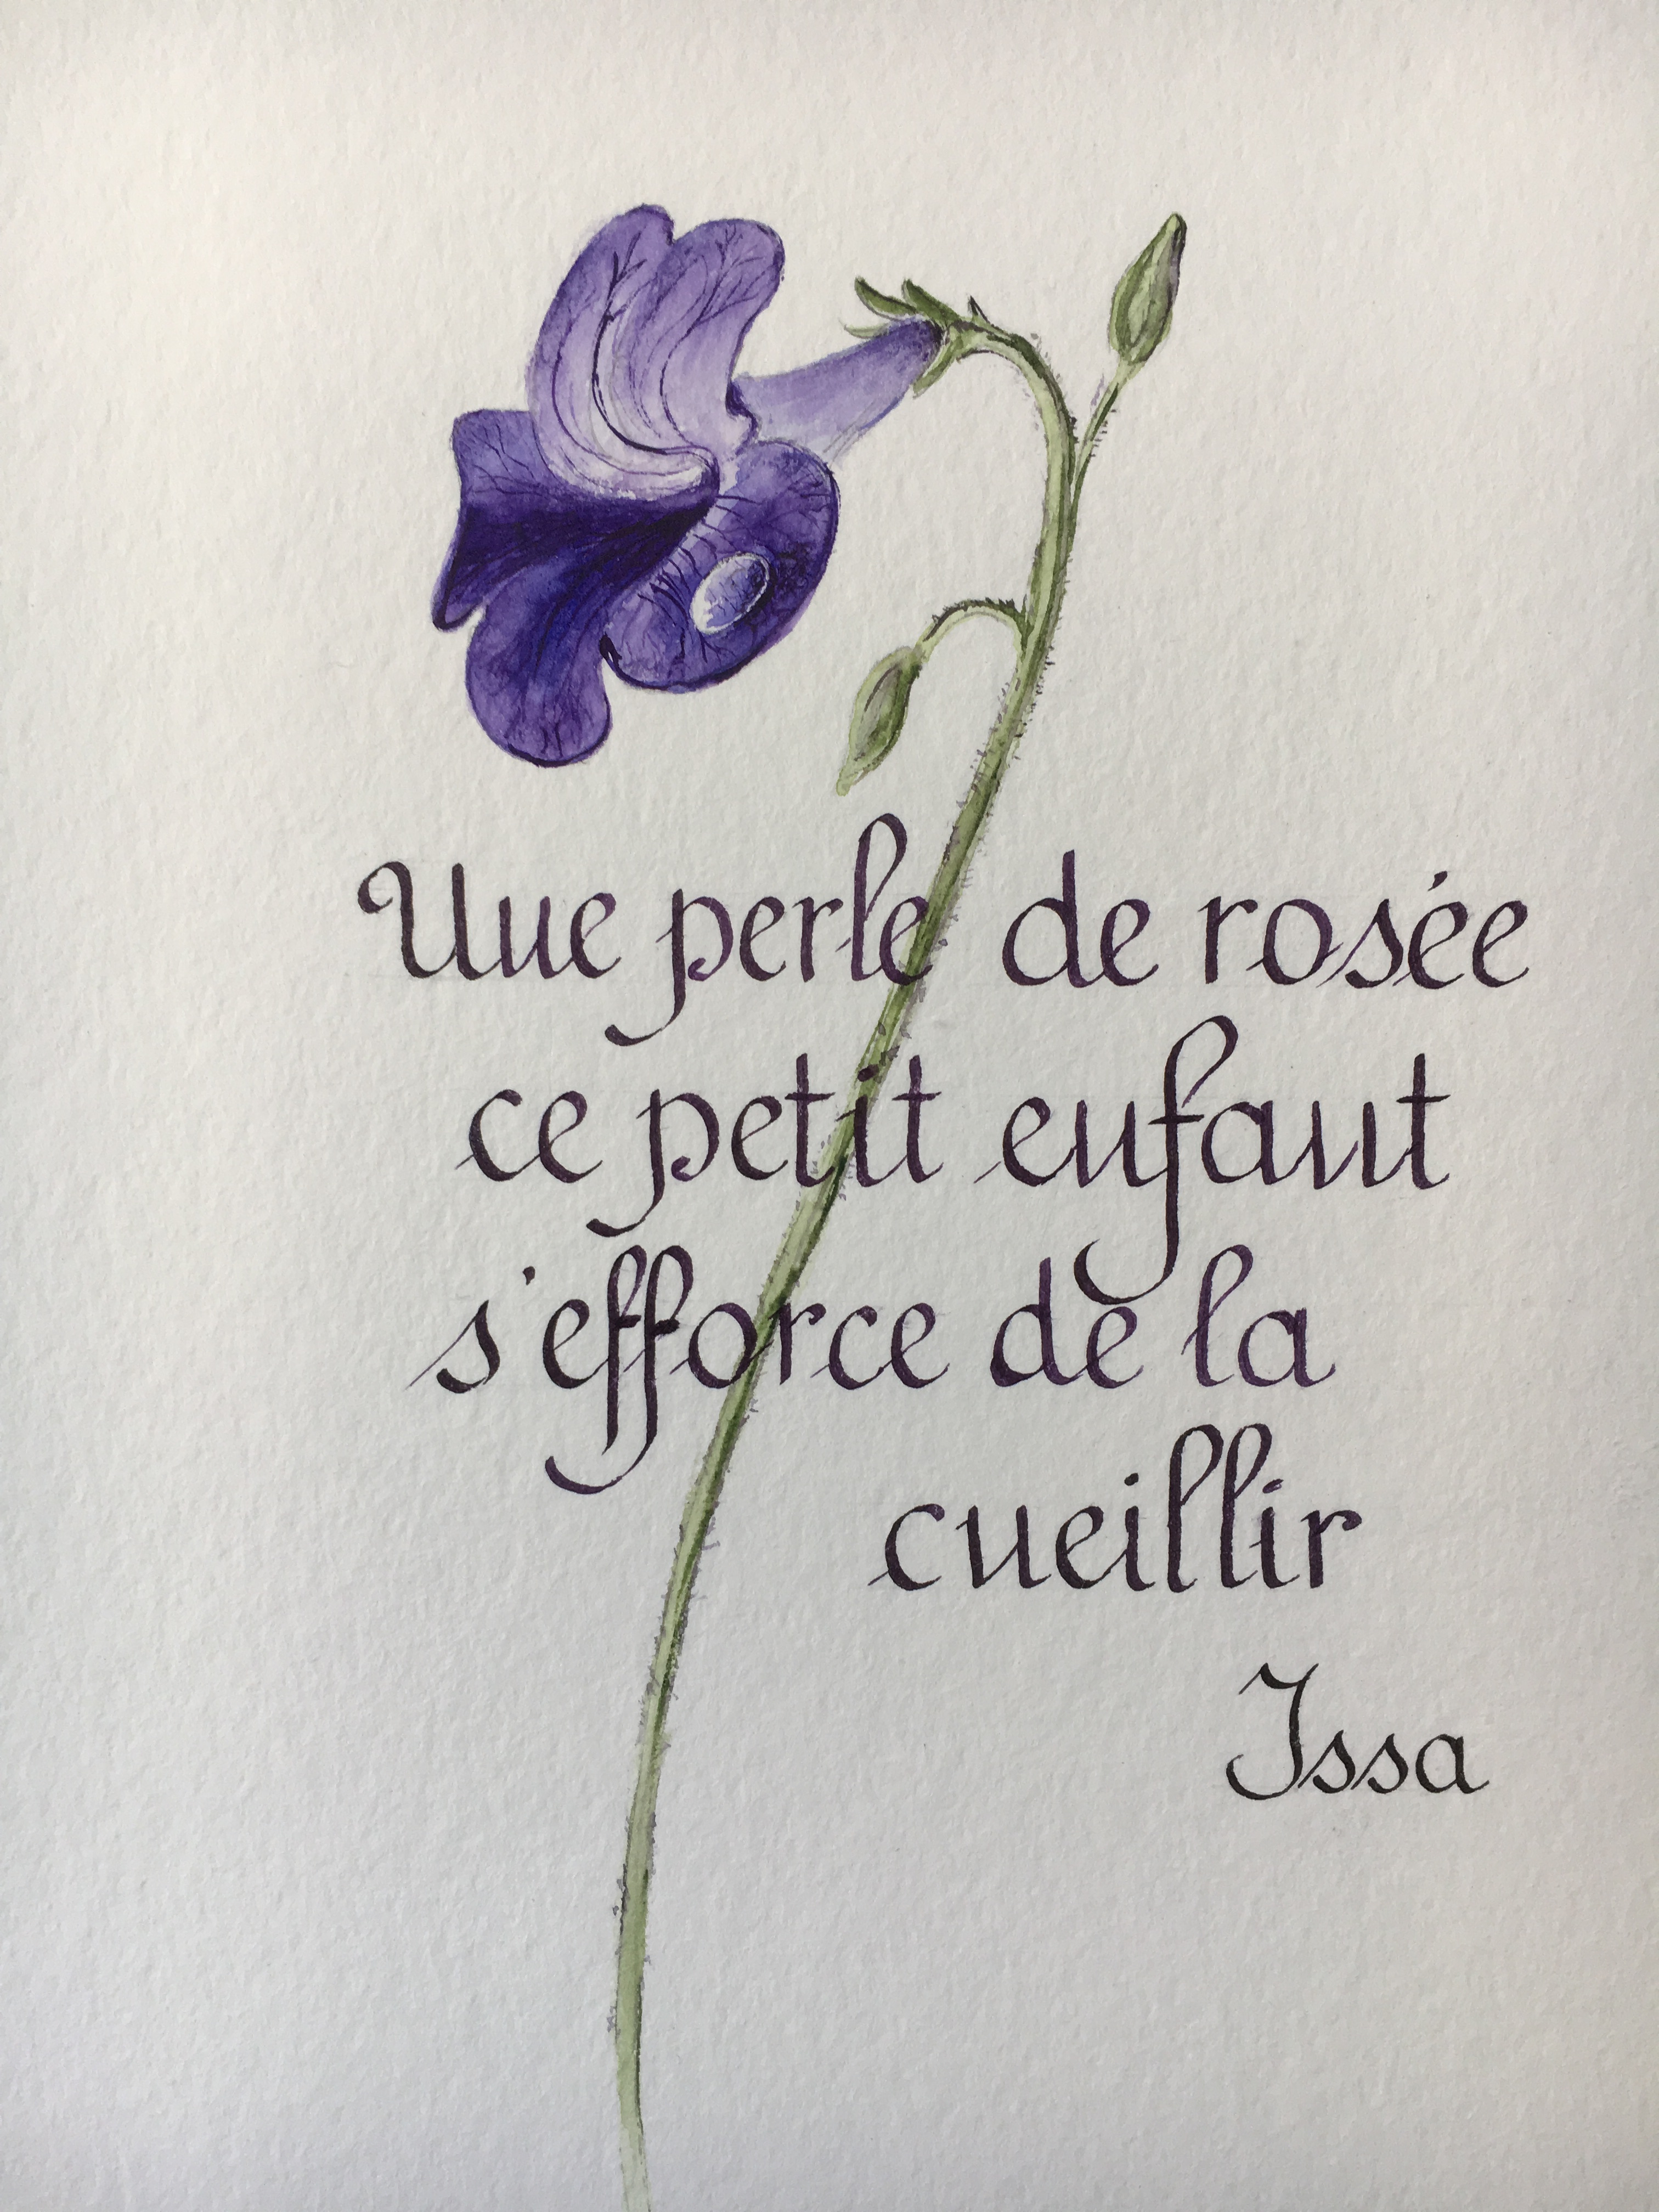 Une perle de rosée
ce petit enfant
s'efforce de la
cueillir
Issa